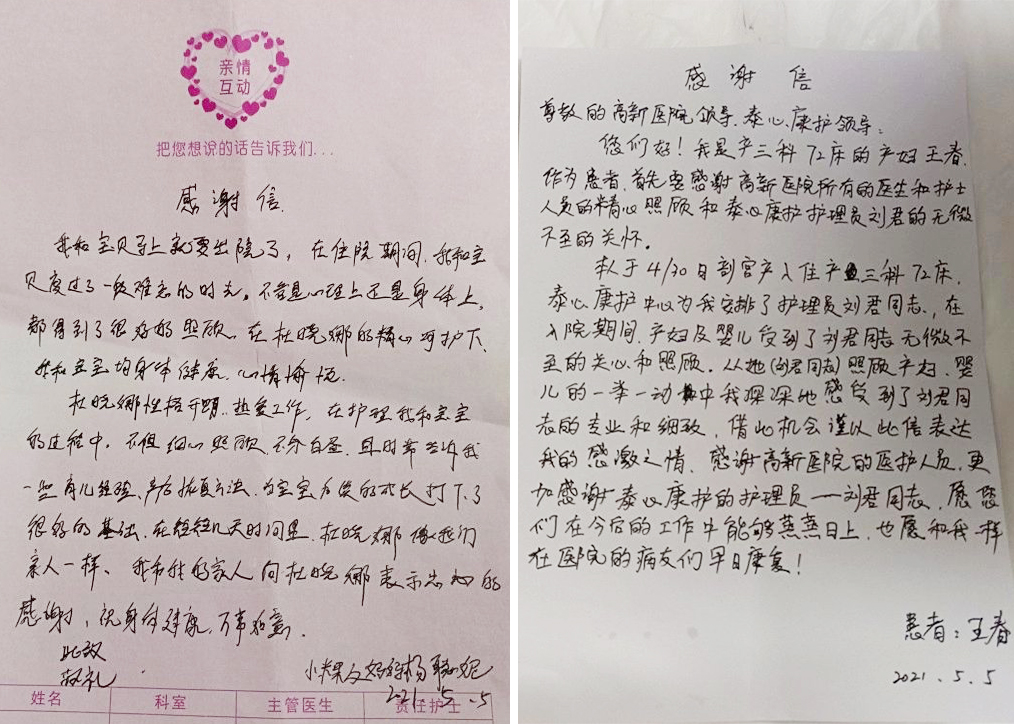 亲情
互动
把您想说的话告诉我们...
感谢信
我和宝贝马上就要出院了，在住院期间，我和宝
贝度过了一段难忘的时光。不管是心理上还是身体上，
都得到了很好的照顾。在杜晓娜的精心呵护下，
我和宝宝均身体健康，心情愉悦。
杜晓娜性格开朗，热爱工作，在护理我和宝宝
的过程中，不但细心照顾，不分白昼，且时常告诉我
一些育儿经验、产后恢复方法，为宝宝今后的成长打下了
很好的基础，在短短几天时间里，杜晓娜像我们
亲人一样、我和我的家人向杜晓娜表示忠心的
感谢，祝身体健康，万事如意。
此致
敬礼
杨
2021.5.5
姓名 科室 主管医生 责任护士
感谢信
尊敬的高新医院领导、泰心康护领导：
您们好！我是产三科72床的产妇王春，
作为患者，首先要感谢高新医院所有的医生和护士
人员的精心照顾和泰心康护护理员刘君的无微
不至的关怀。
本人于4/30日剖宫产入住产三科72床，
泰心康护中心为我安排了护理员刘君同志，在
入院期间，产妇及婴儿受到了刘君同志无微不
至的关心和照顾。从她(刘君同志)照顾产妇、婴
儿的一举一动中我深深地感受到了刘君同
志的专业和细致，借此机会谨以此信表达
我的感激之情，感谢高新医院的医护人员，更
加感谢泰心康护的护理员——刘君同志，愿您
们在今后的工作中能够蒸蒸日上，也愿和我一样
在医院的病友们早日康复！
患者：王春
2021.5.5